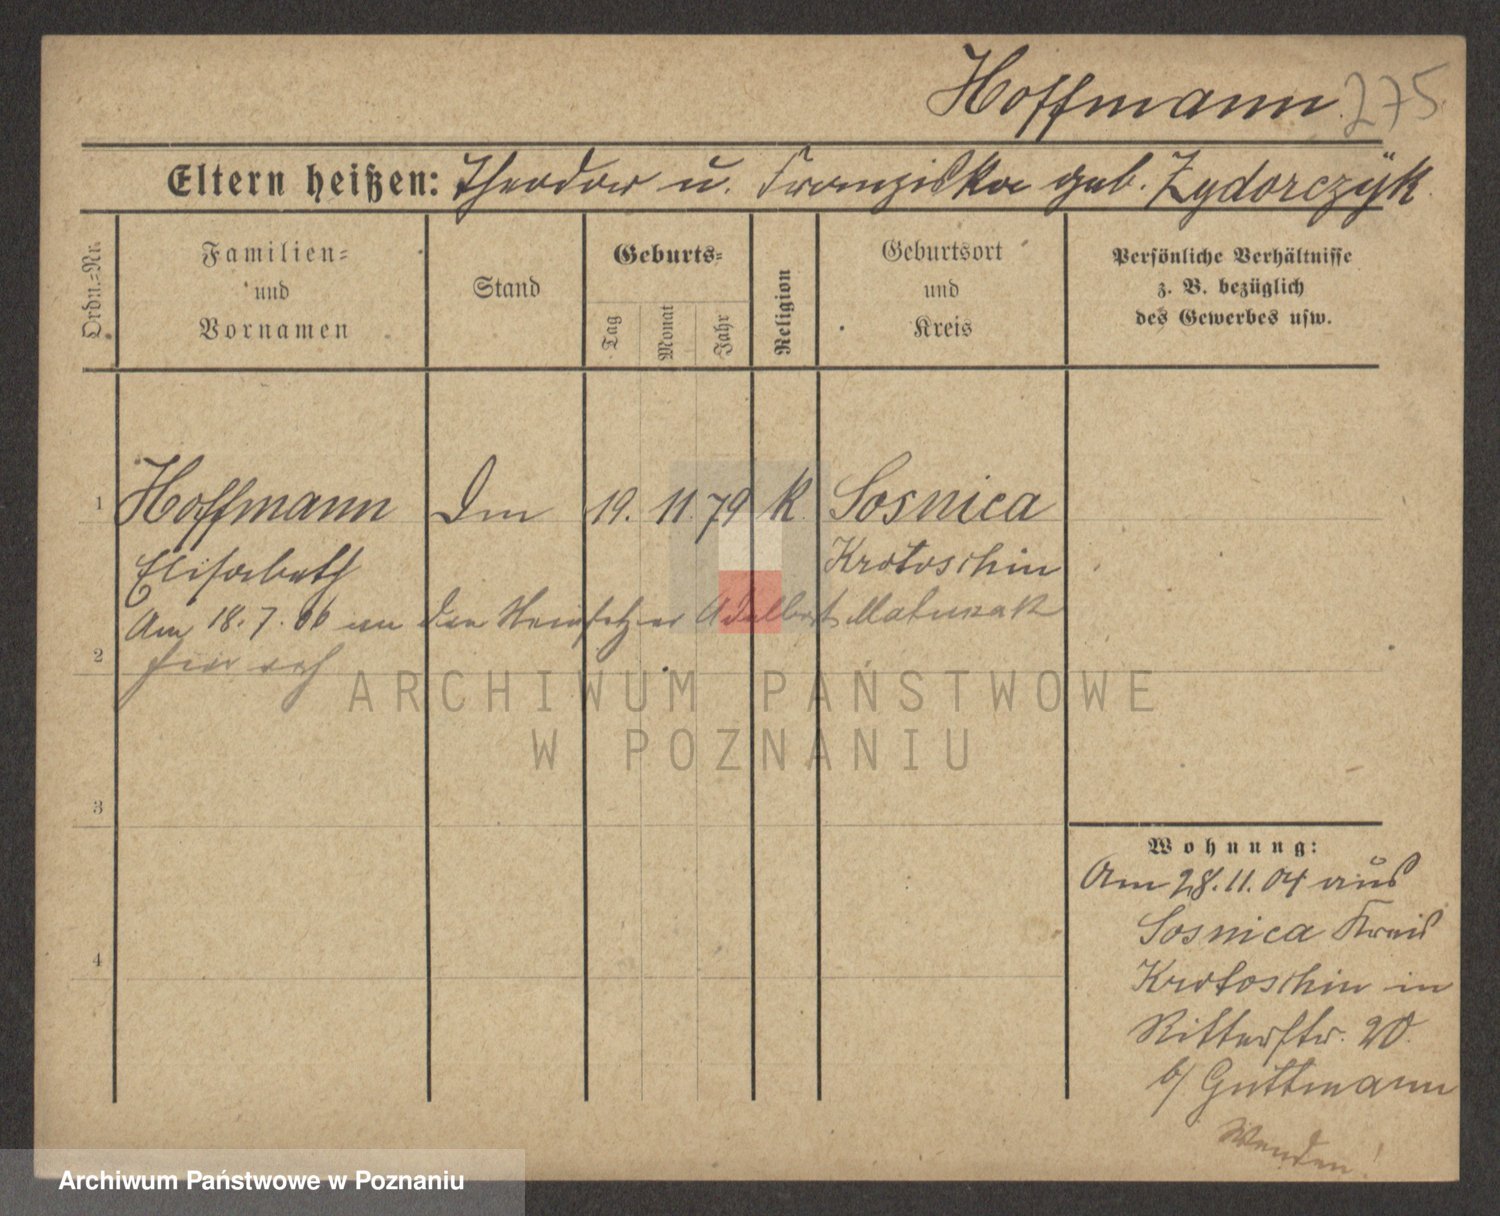 Hoffmann. 275
Eltern heißen: Theodor u. Franziska geb. Zydorczÿk
Ordn.-Nr.
Familien-
und
Vornamen
Stand
Geburts-
Tag
Monat
Jahr
Religion
Geburtsort
und
Kreis
Persönliche Verhältnisse
z. B. bezüglich
des Gewerbes usw.
1 Hoffmann 19. 11. 79 K Sosnica
Elisabeth Krotoschin
Am 18. 7. 06 an den Adalbert Matuszak
2
ARCHIWUM PAŃSTWOWE
W POZNANIU
3
Wohnung:
Am 28. 11. 04 aus
Sosnica Kreis
4
Krotoschin in
Ritterstr. 20.
b/ Guttmann
Wenden!
Archiwum Państwowe w Poznaniu